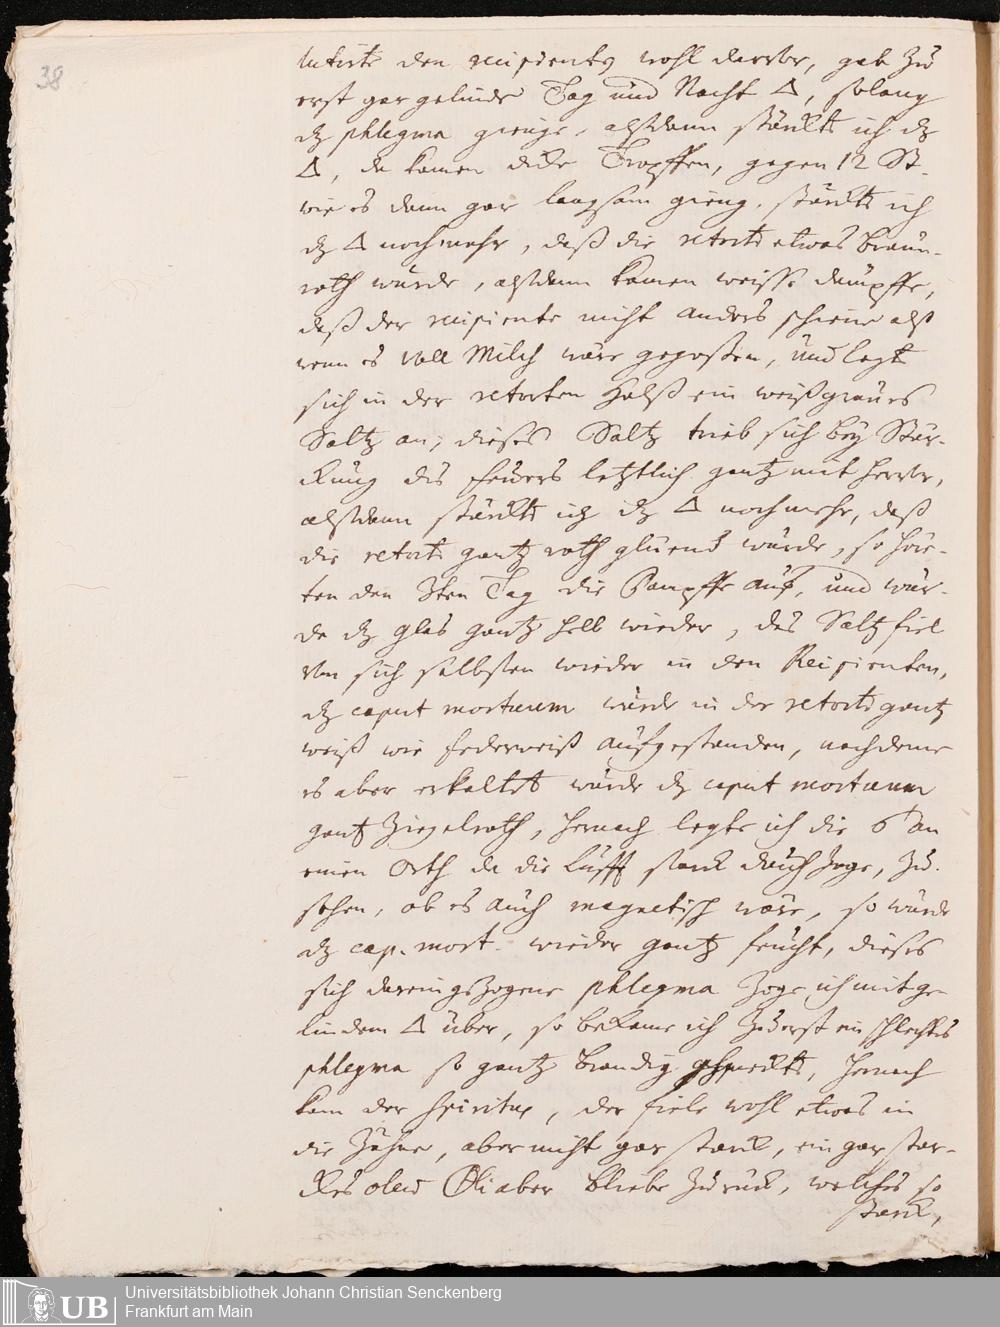 38
lutirte den recipienten wohl darvor, gab zu
erst gar gelinde Tag und Nacht △, solang
dz phlegma gienge, alsdann stärckte ich dz
△, da kamen dicke Tropffen, gegen 12 St.
wie es dann gar langsam gieng, stärckte ich
dz △ noch mehr, daß die retorte etwas braun-
roth wurde, alsdann kamen weisse dämpffe,
daß der recipiente nicht anders schiene alß
wenn es voll Milch wäre gegossen, und legt
sich in der retorten Halß ein weißgraues
Saltz an; dieses Saltz trieb sich bey Stär-
ckung des feuers letztlich gantz mit hervor,
alsdann stärckte ich dz △ noch mehr, daß
die retorte gantz roth gluend wurde, so hör-
ten den 3ten Tag die Dämpffe auf, und wur-
de dz glas gantz hell wieder, das Saltz fiel
von sich selbsten wieder in den Recipienten,
dz caput mortuum wurde in der retorte gantz
weiß wie federweiß aufgestanden, nachdeme
es aber erkaltet wurde dz caput mortuum
gantz Ziegelroth, hernach legte ich die 6 an
einen Orth da die Lufft starck durchzoge, zu
sehen, ob es auch magnetisch wäre, so wurde
dz cap. mort. wieder gantz feucht, dieses
sich dareingezogene phlegma zoge ich mit ge-
lindem △ über, so bekame ich zuerst ein schlechtes
phlegma so gantz brandig schmeckte, hernach
kam der spiritus, der fiele wohl etwas in
die Zähne, aber nicht gar starck, ein gar star-
ckes oleum Oli aber bliebe zuruck, welches so
starck,
Universitätsbibliothek Johann Christian Senckenberg
Frankfurt am Main
UB